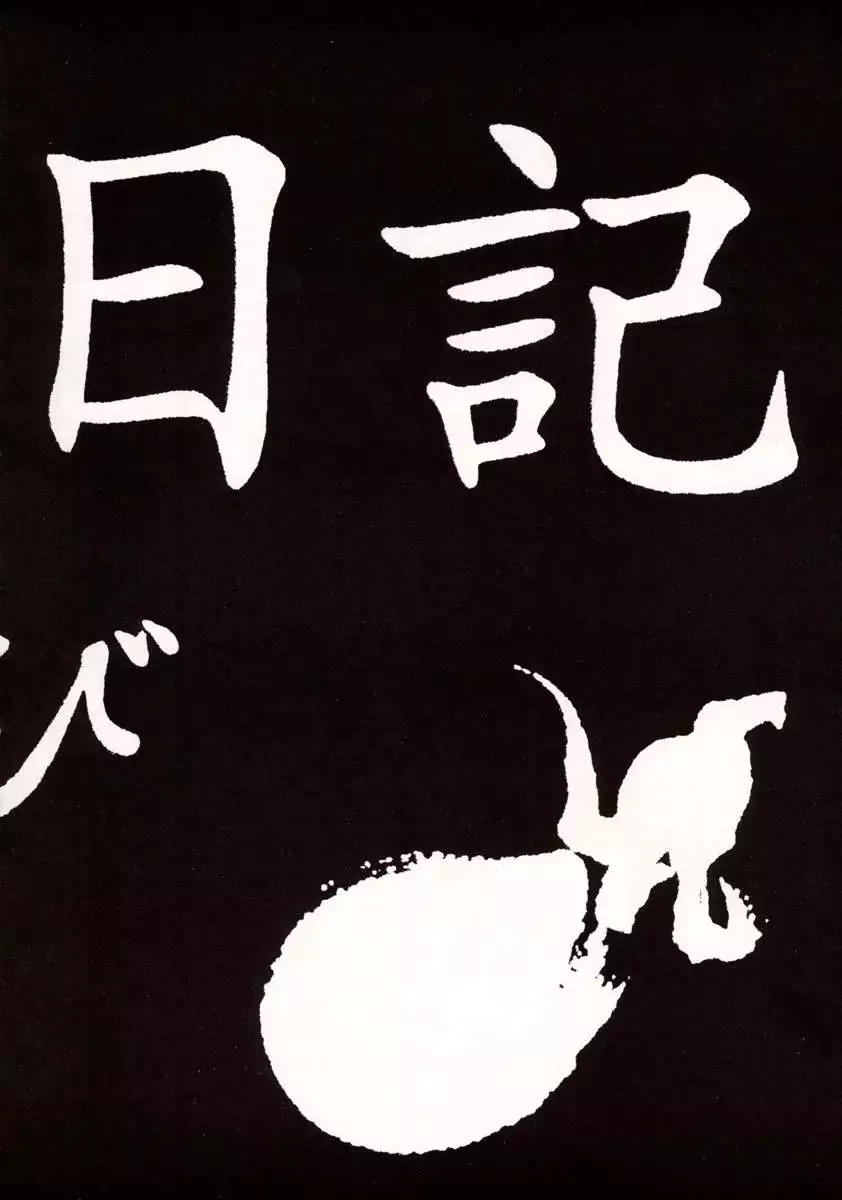 日記
び